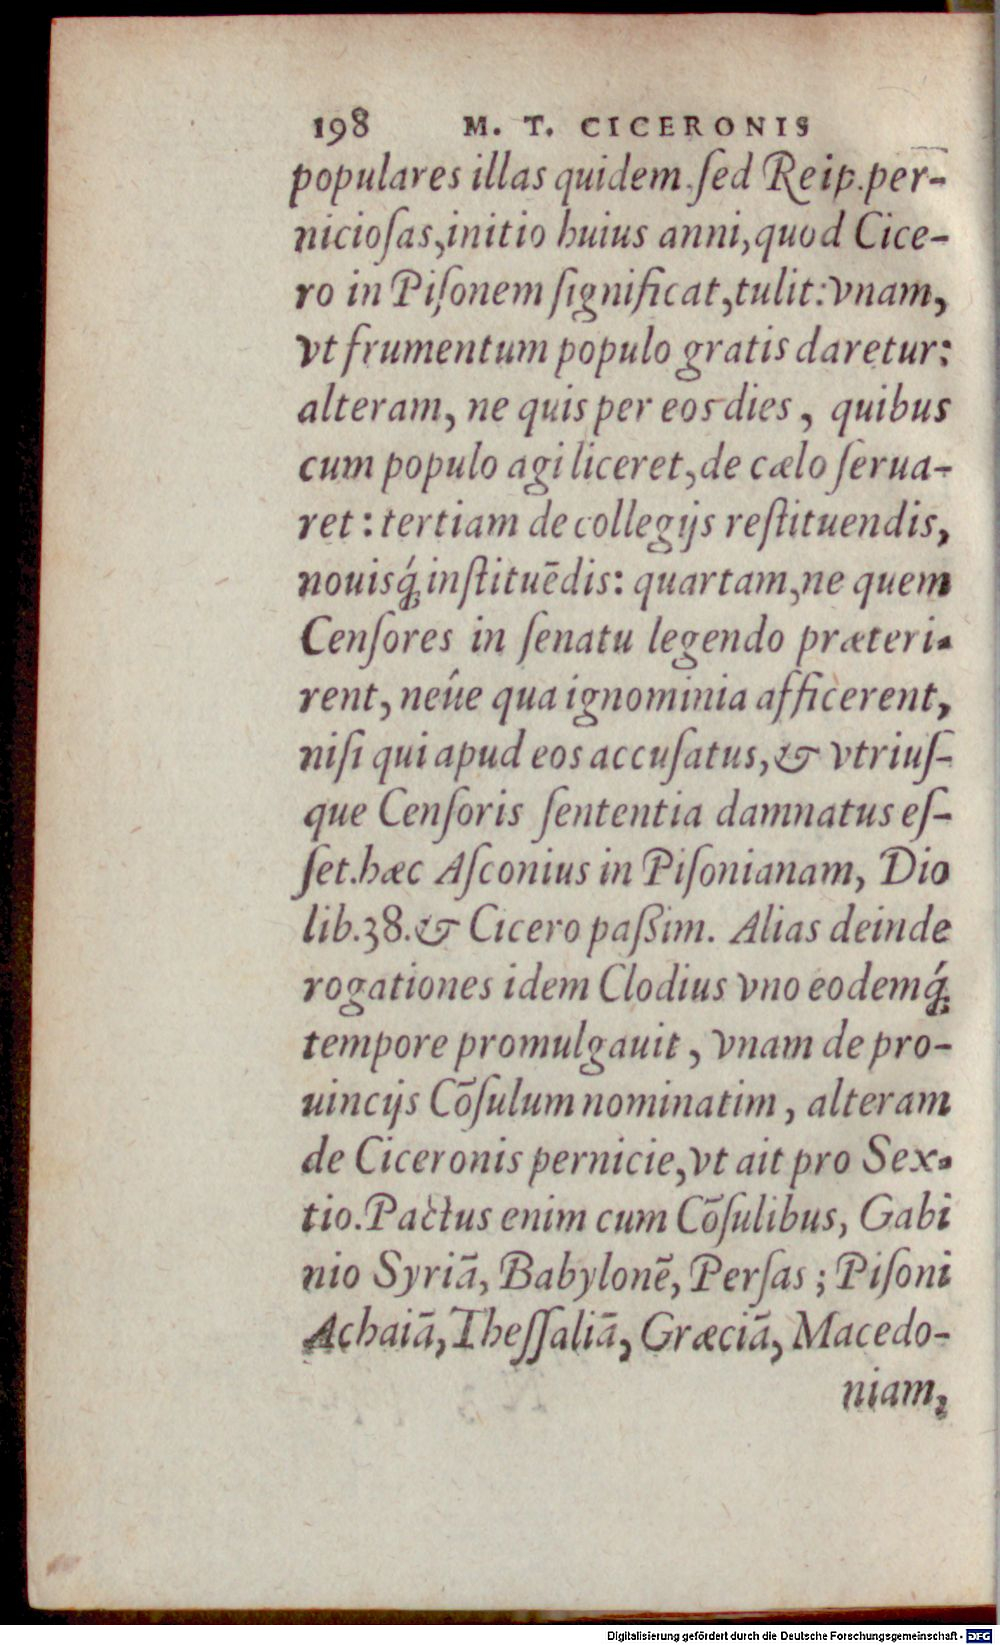 198 M. T. CICERONIS
populares illas quidem, ſed Reip. per-
nicioſas, initio huius anni, quod Cice-
ro in Piſonem ſignificat, tulit: vnam,
vt frumentum populo gratis daretur:
alteram, ne quis per eos dies, quibus
cum populo agi liceret, de cælo ſerua-
ret: tertiam de collegijs reſtituendis,
nouisq́; inſtituēdis: quartam, ne quem
Cenſores in ſenatu legendo præteri-
rent, neûe qua ignominia afficerent,
niſi qui apud eos accuſatus, & vtriuſ-
que Cenſoris ſententia damnatus eſ-
ſet. hæc Aſconius in Piſonianam, Dio
lib. 38. & Cicero paßim. Alias deinde
rogationes idem Clodius vno eodemq́;
tempore promulgauit, vnam de pro-
uincijs Cōſulum nominatim, alteram
de Ciceronis pernicie, vt ait pro Sex-
tio. Pactus enim cum Cōſulibus, Gabi
nio Syriā, Babylonē, Perſas; Piſoni
Achaiā, Theſſaliā, Græciā, Macedo-
niam,
Digitalisierung gefördert durch die Deutsche Forschungsgemeinschaft - DFG